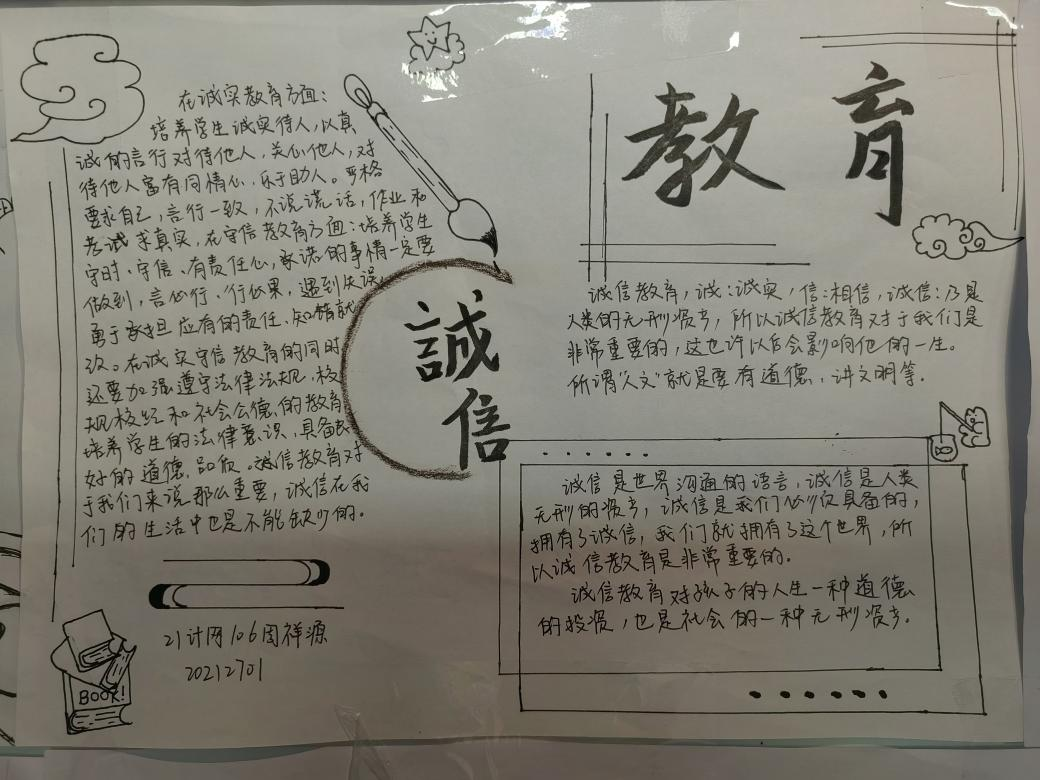 在诚实教育方面：
培养学生诚实待人，以真
诚的言行对待他人，关心他人，对
待他人富有同情心，乐于助人。严格
要求自己，言行一致，不说谎话，作业和
考试求真实，在守信教育方面：培养学生
守时、守信、有责任心，承诺的事情一定要
做到，言必行、行必果，遇到失误
勇于承担应有的责任、知错就
改。在诚实守信教育的同时
还要加强遵守法律法规、校
规校纪和社会公德、的教育
培养学生的法律意识，具备良
好的道德、品质。诚信教育对
于我们来说那么重要，诚信在我
们的生活中也是不能缺少的。
21计网106周祥源
20212701
BOOK!
誠
信
教育
诚信教育，诚：诚实，信：相信，诚信：乃是
人类的无形资产，所以诚信教育对于我们是
非常重要的，这也许以后会影响他的一生。
所谓“人文”就是要有道德、讲文明等.
诚信是世界沟通的语言，诚信是人类
无形的资产，诚信是我们必须具备的，
拥有了诚信，我们就拥有了这个世界，所
以诚信教育是非常重要的.
诚信教育对孩子的人生一种道德
的投资，也是社会的一种无形资产.